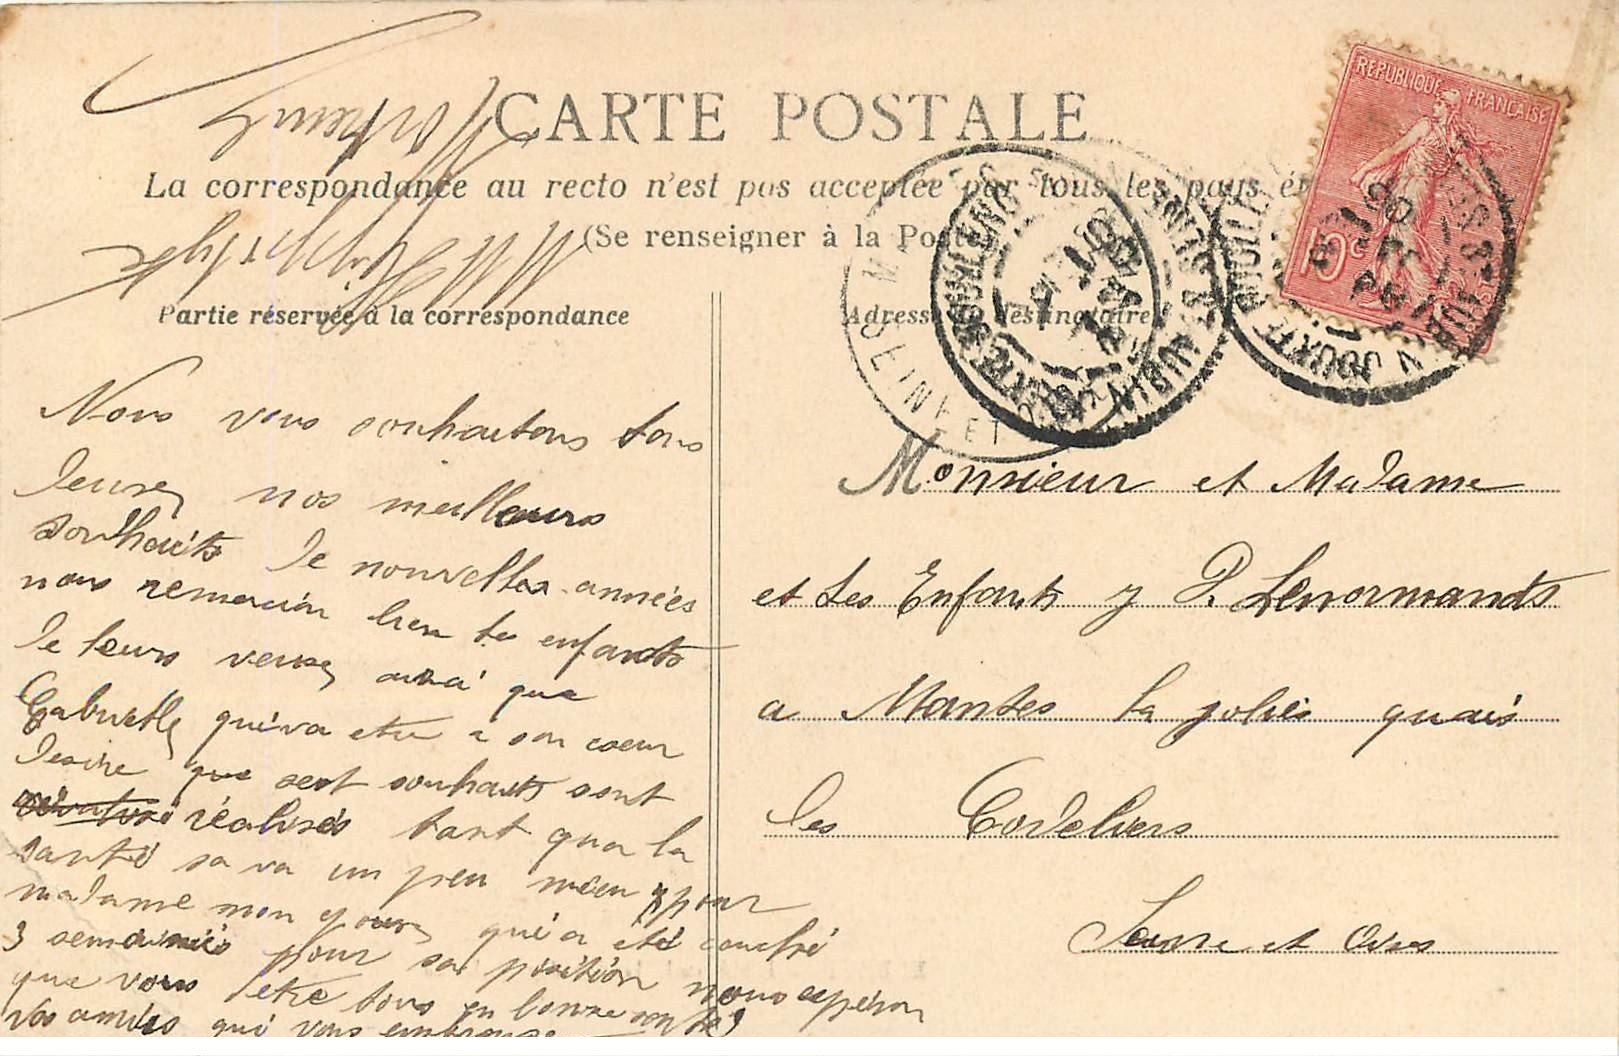 CARTE POSTALE
La correspondance au recto n'est pas acceptée par tous les pays ét
(Se renseigner à la Poste)
Partie réservée à la correspondance
Adresse du destinataire
REPUBLIQUE FRANÇAISE
10c
Nous vous souhaitons tous
nos meilleurs
souhaits de nouvelles années
nous remercion bien les enfants
de leurs veux ainsi que
Gabrielle quéva etre a son coeur
desire que sest souhaits sont
réalisés tant qua la
santé sa va un peu mieu pour
madame mon qui a été couché
3 semainés pour sa position nous espéron
que vous etre tous en bonne santé
Vos amies qui vous embrasse
Monsieur et Madame
et Les Enfants y P. Lenormands
a Mantes la jolies quais
les Cordeliers
Seine et Oise